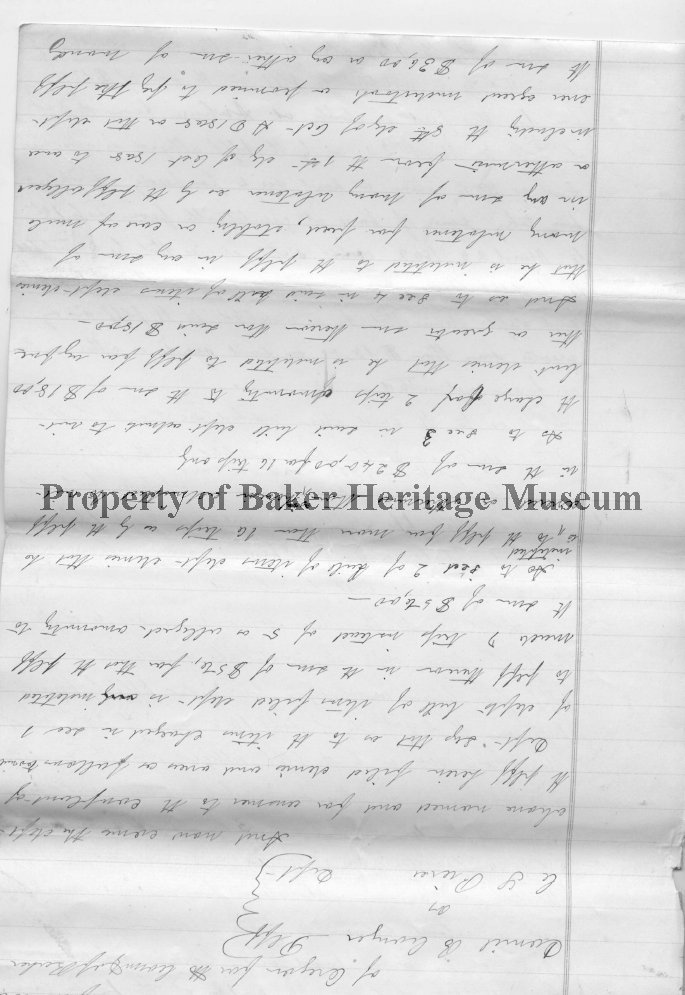 of Oregon for the County of Baker
Daniel B Plff
vs
C S Deft
And now comes the deft
above named and for answer to the complaint of
the plff herein filed denies and avers as follows
Deft says that as to the items charged in sec 1
of defts bill of items filed deft is indebted
to plff thereon in the sum of $56, for that the plff
made 7 trips instead of 5 as alleged amounting to
the sum of $56,00 —
As to sec 2 of bill of items deft denies that he
indebted
is, to the plff for more than 16 trips as by the plff
in the sum of $240,00 for 16 trips only
As to sec 3 in said bill deft admits
the charge for 2 trips amounting to the sum of $18,00
but denies that he is indebted to plff for
other or greater sum thereon than said $18,00 —
And as to sec 4 in said bill of items deft denies
that he is indebted to the plff in any sum of
money whatever for feed, stabling or care of mule
in any sum of money whatever as by the plff alleged
or otherwise from the 1st day of Oct 1885 to and
including the 8th day of Oct AD 1885 or that deft
ever agreed undertook or promised to pay the plff
the sum of $36,00 or any other sum of money
Property of Baker Heritage Museum